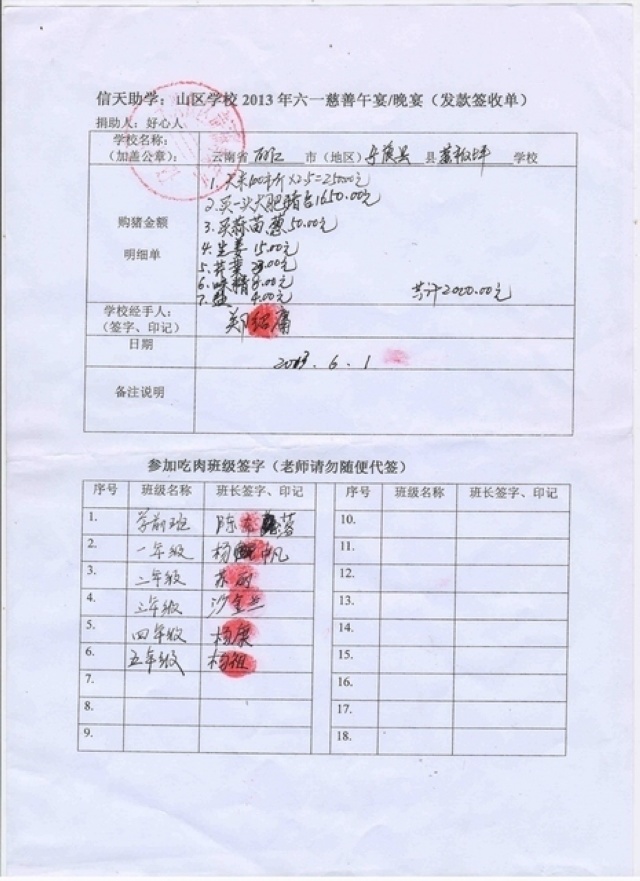 信天助学：山区学校 2013 年六一慈善午宴/晚宴（发款签收单）
捐助人：好心人
学校名称：
（加盖公章）： 云南省 丽江 市（地区） 宁蒗县 县 学校
购猪金额
明细单
1. 大米100市斤×2.5=250.00元
2. 买一头大肥猪合1650.00元
3. 买蒜苗葱50.00元
4. 生姜 15.00元
5. 芹菜
6. 味精 8.00元
7. 盐 4.00元
共计2000.00元
学校经手人：
（签字、印记） 郑绍
日期 2013.6.1
备注说明
参加吃肉班级签字（老师请勿随便代签）
序号 班级名称 班长签字、印记 序号 班级名称 班长签字、印记
1. 学前班 陈 蓉 10.
2. 一年级 杨 帆 11.
3. 二年级 12.
4. 三年级 沙金兰 13.
5. 四年级 杨康 14.
6. 五年级 杨祖 15.
7. 16.
8. 17.
9. 18.